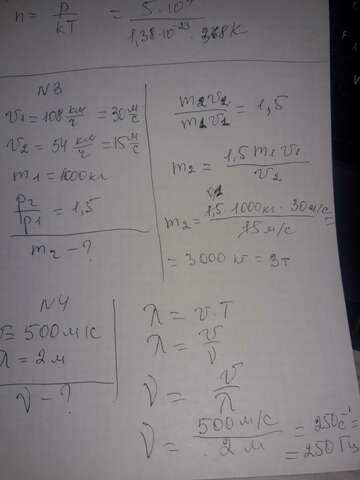 n = p/kT = 5·10/1,38·10^-23 · К
N3
v1 = 108 км/ч = 30 м/с
v2 = 54 км/ч = 15 м/с
m1 = 1000 кг
p2/p1 = 1,5
m2 - ?
m2v2/m1v1 = 1,5
m2 = 1,5 m1 v1/v2
m2 = 1,5·1000кг·30м/с/15 м/с =
= 3000 кг = 3т
N4
v = 500 м/с
λ = 2 м
ν - ?
λ = v·T
λ = v/ν
ν = v/λ
ν = 500 м/с/2 м = 250 с^-1 =
= 250 Гц